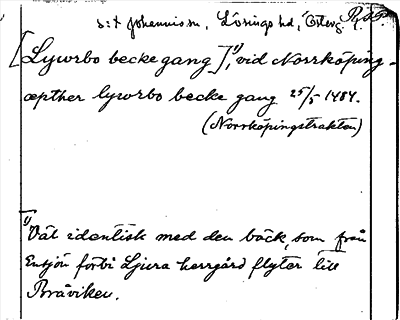 S:t Johannis sn, Lösings hd, Österg.
[Lywrbo becke gang]¹⁾, vid Norrköping.
æpther lywrbo becke gang 25/5 1484.
(Norrköpingstrakten)
¹⁾ Väl identisk med den bäck, som från
Ensjön förbi Ljura herrgård flyter till
Bråviken.